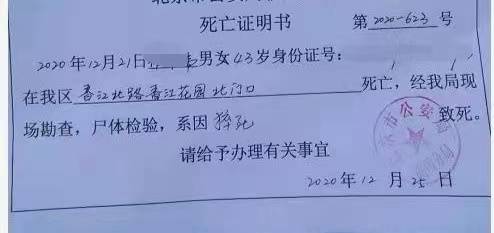 死亡证明书
第2020-623号
2020年12月21日 男女43岁身份证号:
在我区香江北路香江花园北门口死亡,经我局现
场勘查,尸体检验,系因猝死致死。
请给予办理有关事宜
市公安
2020年12月25日